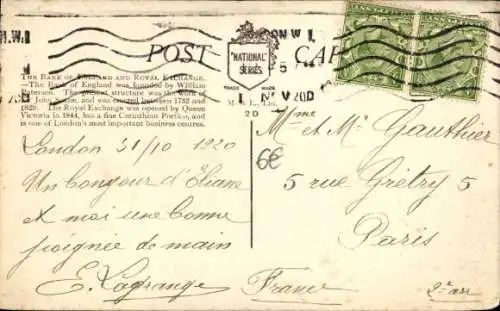 POST CARD
"NATIONAL"
SERIES
TRADE MARK
M. & L., Ltd.
2D
THE BANK OF ENGLAND AND ROYAL EXCHANGE.
The Bank of England was founded by William
Paterson. The present structure was the work of
Sir John Soane, and was erected between 1732 and
1829. The Royal Exchange was opened by Queen
Victoria in 1844, has a fine Corinthian Portico, and
is one of London's most important business centres.
London 31/10 1920
Un bonjour d'Eliane
& moi une bonne
poignée de main
E. Lagrange
6€
Mme et Mr Gauthier
5 rue Grétry 5
Paris
France 2e arr